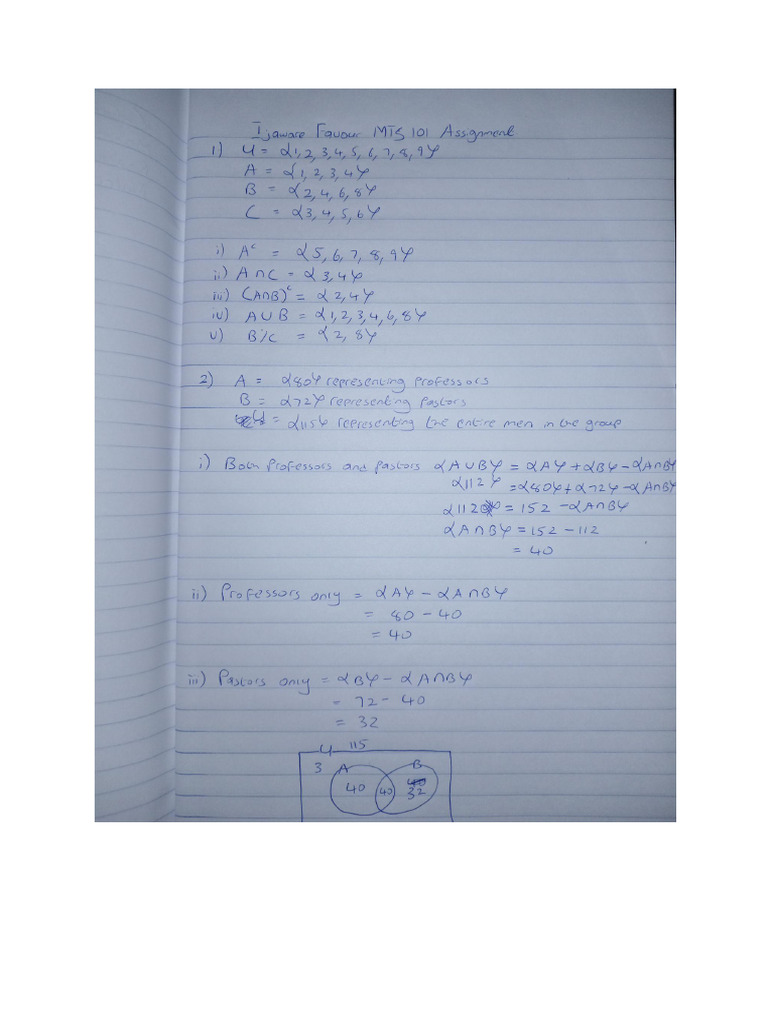 Ijaware Favour MTS 101 Assignment
1) U = {1, 2, 3, 4, 5, 6, 7, 8, 9}
A = {1, 2, 3, 4}
B = {2, 4, 6, 8}
C = {3, 4, 5, 6}
i) Aᶜ = {5, 6, 7, 8, 9}
ii) A∩C = {3, 4}
iii) (A∩B)ᶜ = {2, 4}
iv) A∪B = {1, 2, 3, 4, 6, 8}
v) B/C = {2, 8}
2) A = {80} representing professors
B = {72} representing pastors
= {115} representing the entire men in the group
i) Both Professors and pastors {A∪B} = {A} + {B} – {A∩B}
{112} = {80} + {72} – {A∩B}
{112} = 152 – {A∩B}
{A∩B} = 152 – 112
= 40
ii) Professors only = {A} – {A∩B}
= 80 – 40
= 40
iii) Pastors only = {B} – {A∩B}
= 72 – 40
= 32
U 115
3 A B
40 40 32